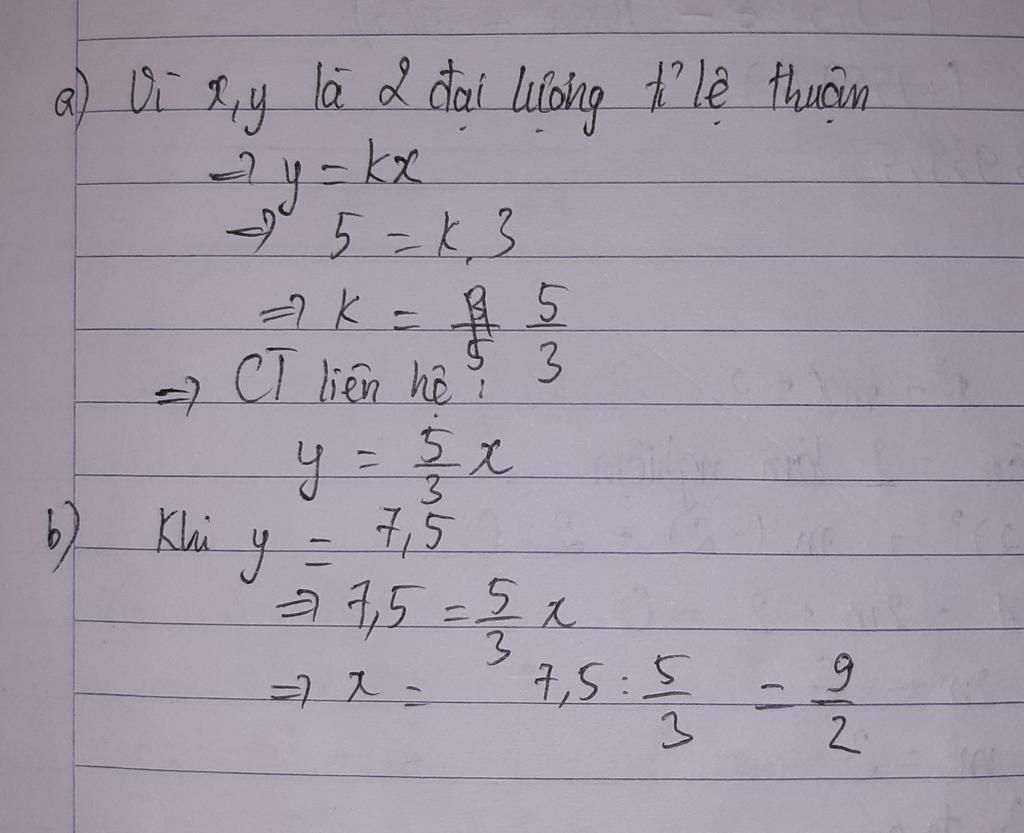 a) Vì x,y là 2 đại lượng tỉ lệ thuận
⇒ y = kx
⇒ 5 = k.3
⇒ k = 5/3
⇒ CT liên hệ:
y = 5/3 x
b) Khi y = 7,5
⇒ 7,5 = 5/3 x
⇒ x = 7,5 : 5/3 = 9/2